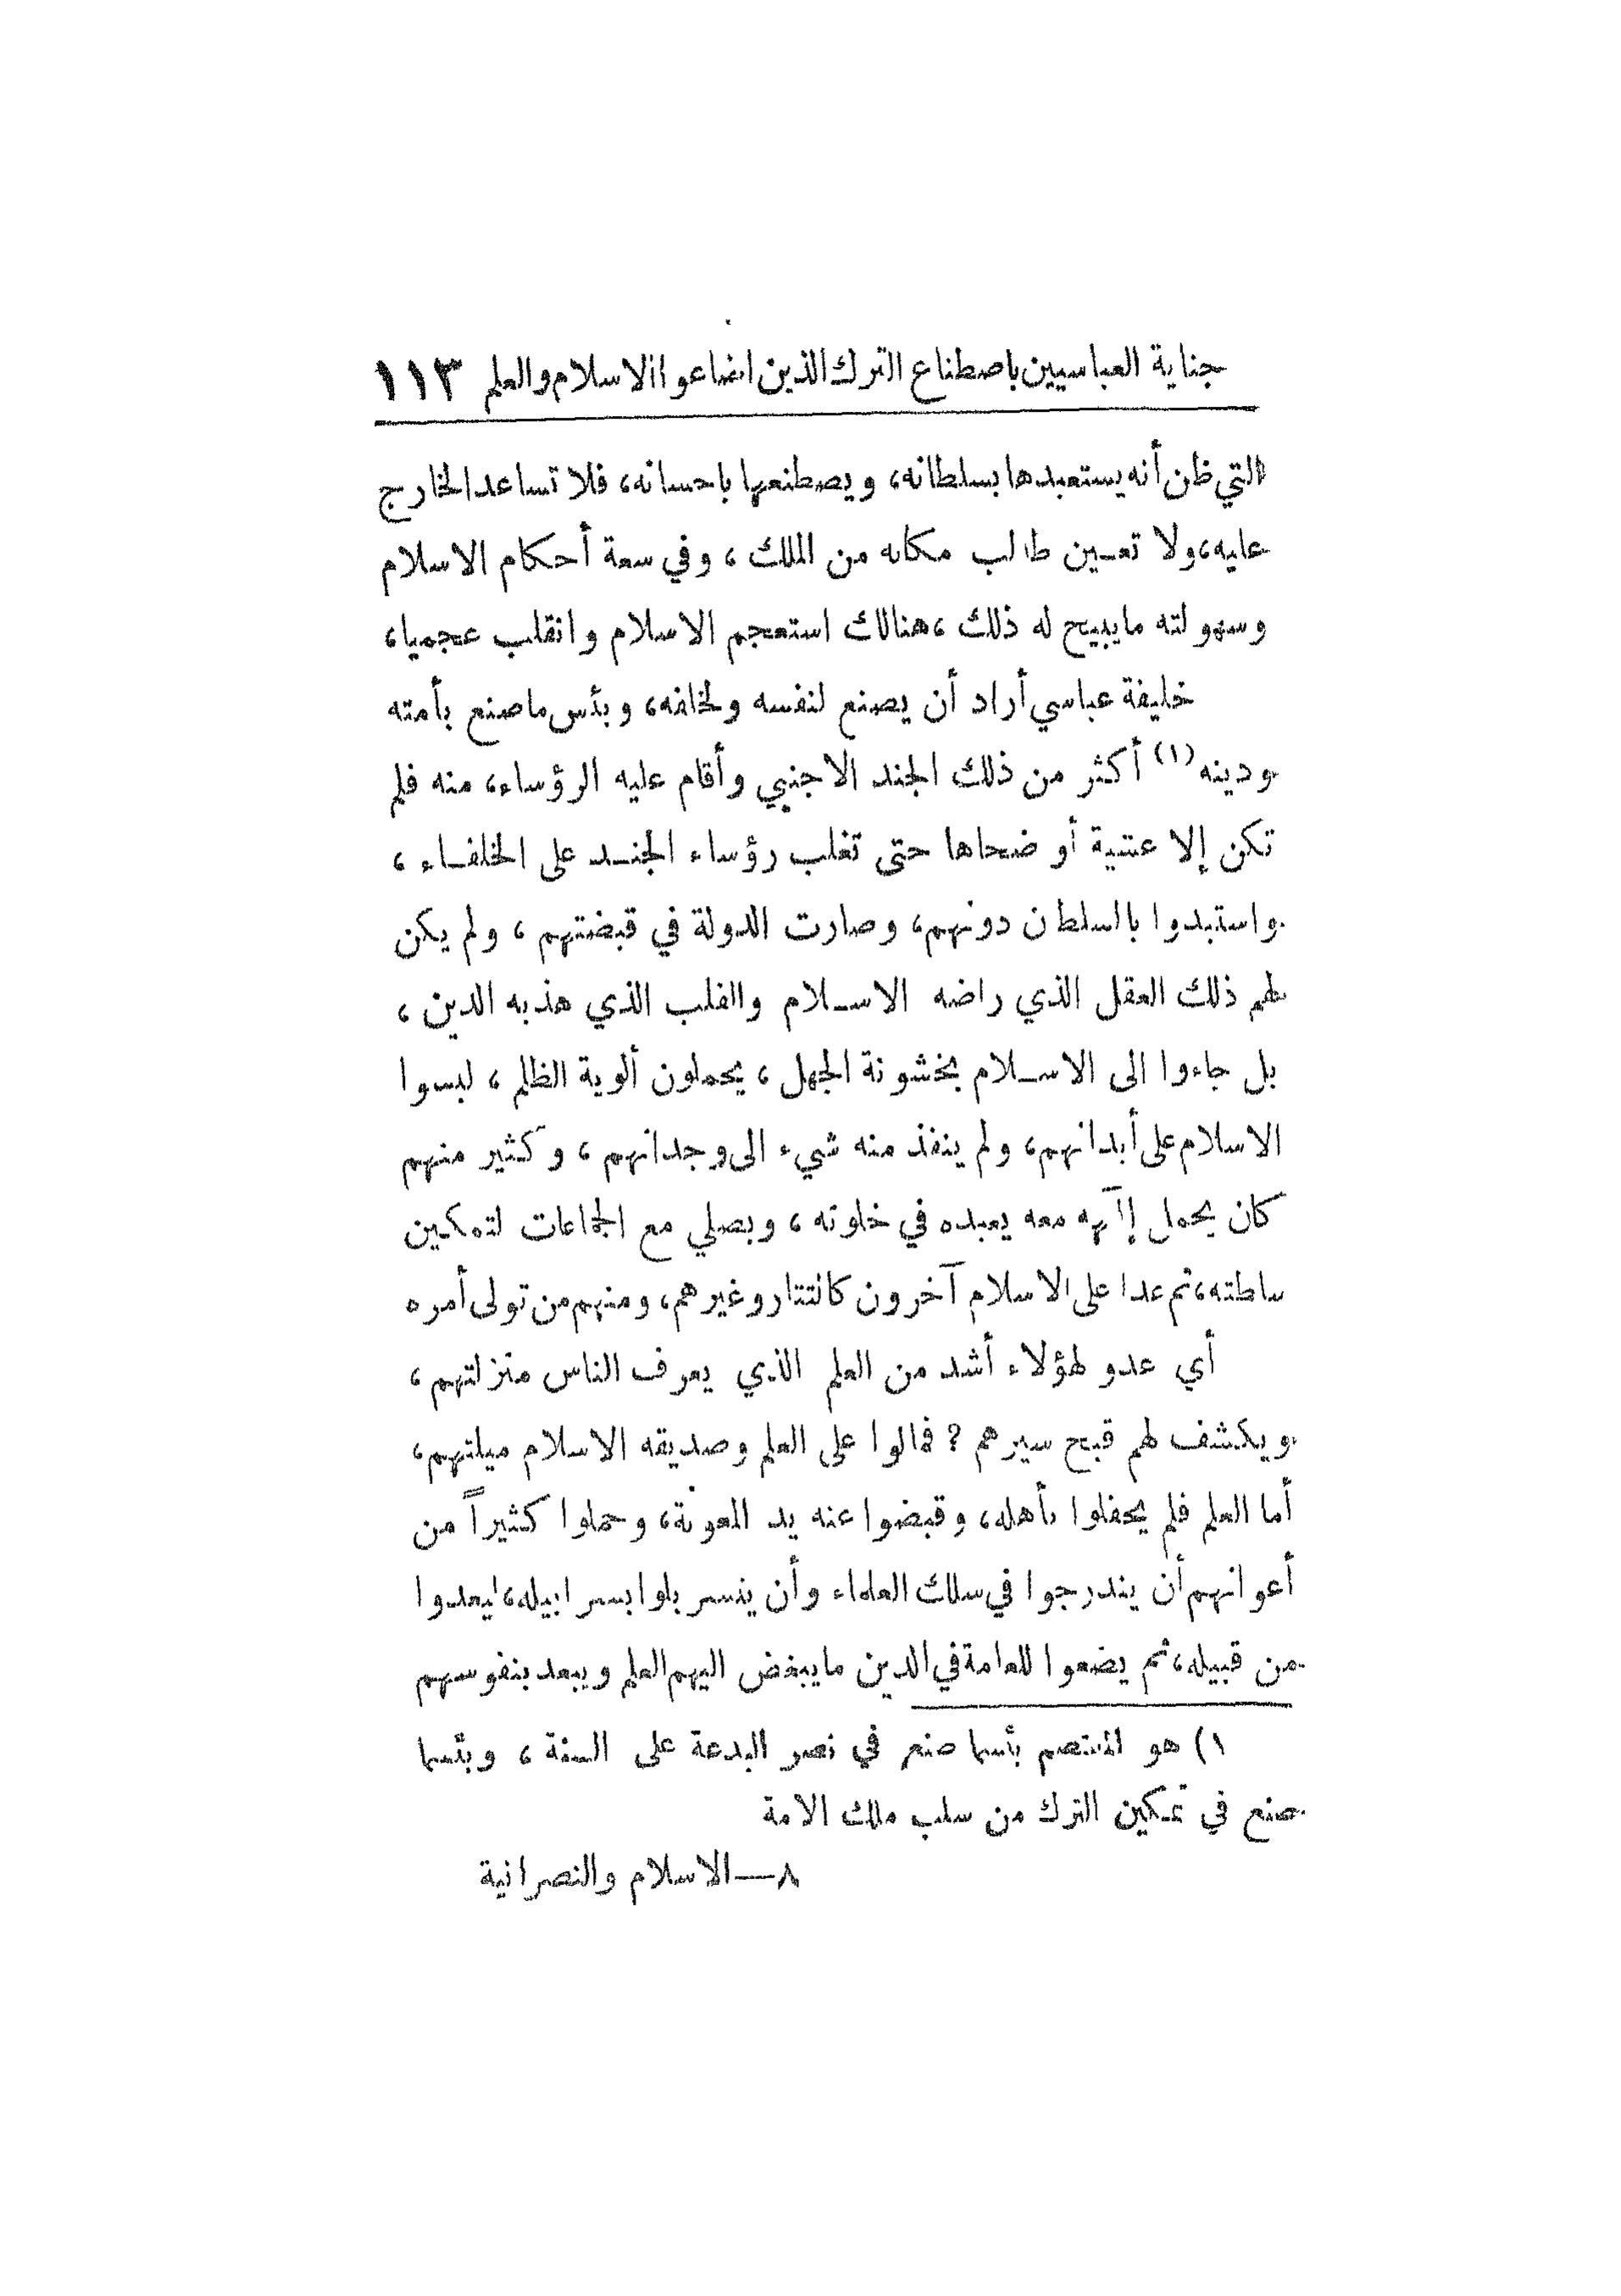 جناية العباسيين باصطناع الترك الذين اضاعوا الاسلام والعلم ١١٣
التي ظن أنه يستعبدها بسلطانه، ويصطنعها باحسانه، فلا تساعد الخارج
عليه، ولا تعين طالب مكانه من الملك، وفي سعة أحكام الاسلام
وسهولته ما يبيح له ذلك، هنالك استعجم الاسلام وانقلب عجميا،
خليفة عباسي أراد أن يصنع لنفسه ولخلفه، وبئس ما صنع بأمته
ودينه (١) أكثر من ذلك الجند الاجنبي وأقام عليه الرؤساء، منه فلم
تكن إلا عشية أو ضحاها حتى تغلب رؤساء الجند على الخلفاء،
واستبدوا بالسلطان دونهم، وصارت الدولة في قبضتهم، ولم يكن
لهم ذلك العقل الذي راضه الاسلام والقلب الذي هذبه الدين،
بل جاءوا الى الاسلام بخشونة الجهل، يحملون ألوية الظلم، لبسوا
الاسلام على أبدانهم، ولم ينفذ منه شيء الى وجدانهم، وكثير منهم
كان يحمل إآهه معه يعبده في خلوته، ويصلي مع الجماعات لتمكين
سلطته، ثم عدا على الاسلام آخرون كالتتار وغيرهم، ومنهم من تولى أمره
أي عدو لهؤلاء أشد من العلم الذي يعرف الناس منزلتهم،
ويكشف لهم قبح سيرهم ؟ فمالوا على العلم وصديقه الاسلام ميلتهم،
أما العلم فلم يحفلوا بأهله، وقبضوا عنه يد المعونة، وحملوا كثيراً من
أعوانهم أن يندرجوا في سلك العلماء وأن يتسربلوا بسرابيله، ليعدوا
من قبيله، ثم يضعوا للعامة في الدين ما يبغض اليهم العلم ويبعد بنفوسهم
١) هو المعتصم بئسما صنع في نصر البدعة على السنة، وبئسما
صنع في تمكين الترك من سلب ملك الامة
٨—الاسلام والنصرانية